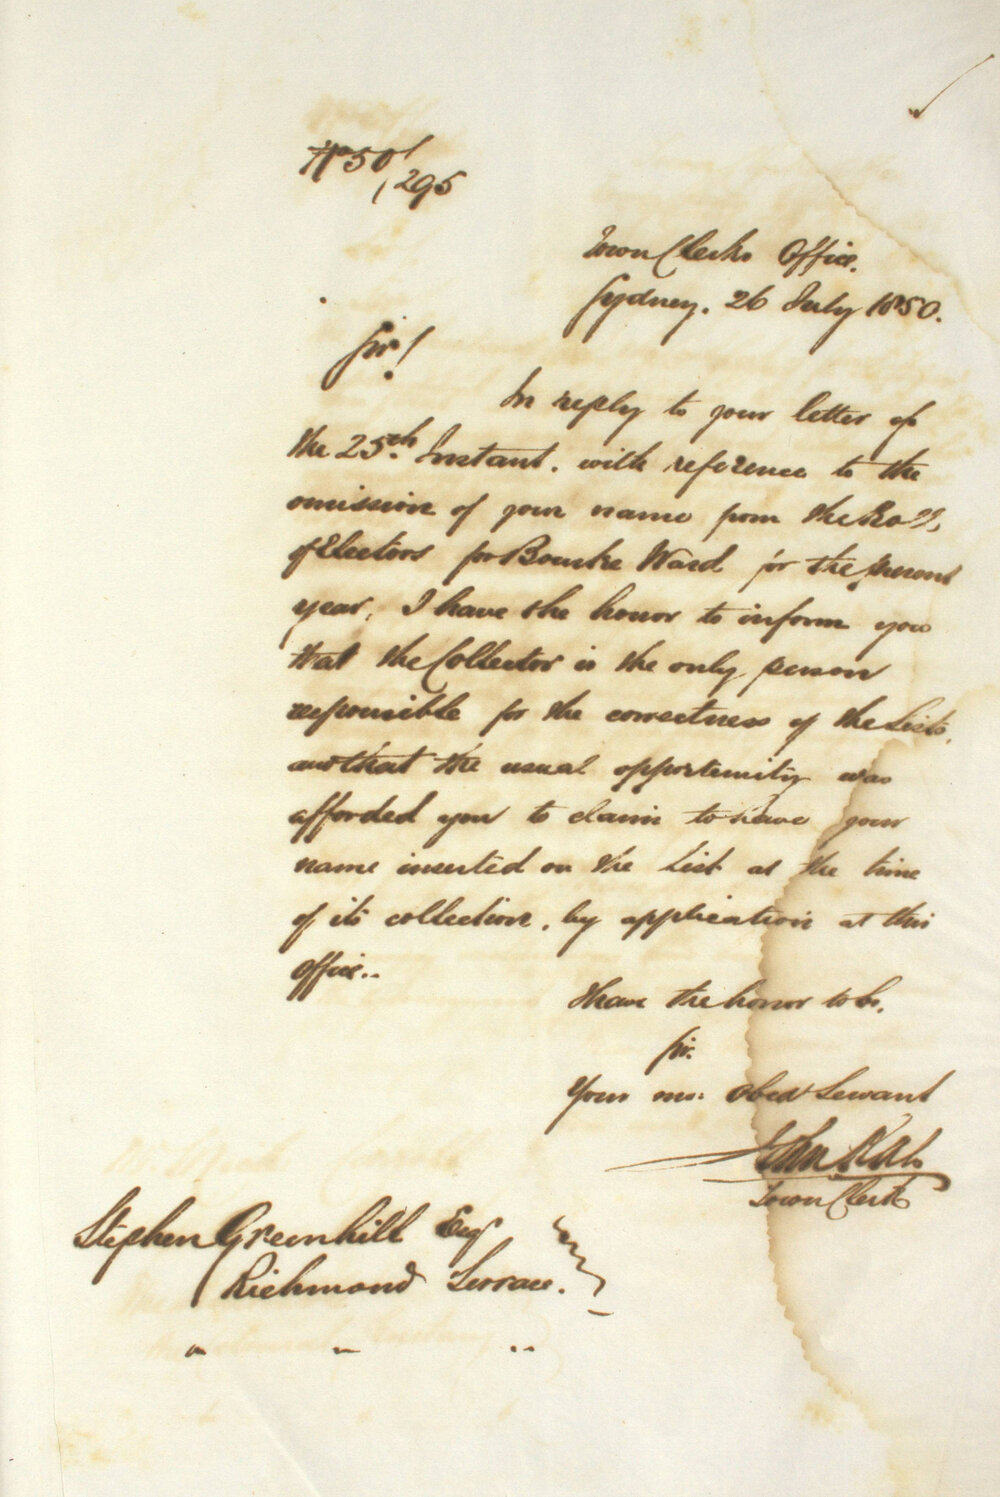 No 50/295
Town Clerks Office.
Sydney. 26 July 1850.
Sir!
In reply to your letter of
the 25th Instant. with reference to the
omission of your name from the Roll
of Electors for Bourke Ward for the present
year, I have the honor to inform you
that the Collector is the only person
responsible for the correctness of the Lists,
and that the usual opportunity was
afforded you to claim to have your
name inserted on the List at the time
of its collection, by application at this
Office..
I have the honor to be,
Sir.
Your mo: Obed Servant
John
Town Clerk
Stephen Greenhill Esq
Richmond Terrace.